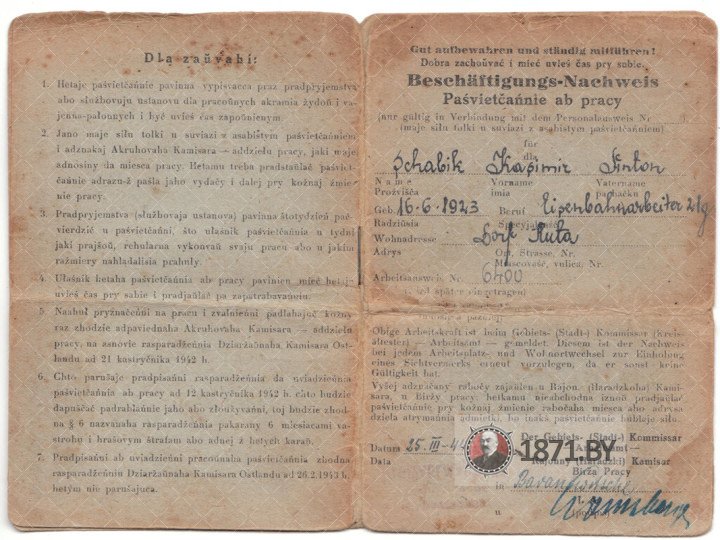 Dla zaŭvahi:
1. Hetaje paśvietčańnie pavinna vypisvacca praz pradpryjemstva
abo służbovuju ustanovu dla pracoŭnych akramia żydoŭ i va-
jenna-pałonnych i być uvieś čas zapoŭnienym.
2. Jano maje siłu tolki u suviazi z asabistym paśvietčańniem
i adznakaj Akruhovaha Kamisara — addziełu pracy, jaki maje
adnosiny da miesca pracy. Hetamu treba pradstaŭlać paśviet-
čańnie adrazu-ż paśla jaho vydačy i dalej pry kożnaj źmie-
nie pracy.
3. Pradpryjemstva (służbovaja ustanova) pavinna štotydzień pać-
vierdzić u paśvietčańni, što ułaśnik paśvietčańnia u tydni
jaki prajšoŭ, rehularna vykonvaŭ svaju pracu abo u jakim
razmiery nahladalisia prahuły.
4. Ułaśnik hetaha paśvietčańnia ab pracy pavinien mieć hetaje
uvieś čas pry sabie i pradjaŭlać pa zapatrabavańniu.
5. Naahuł pryznačeńni na pracu i zvalnieńni padlahajuć kożny
raz zhodzie adpaviednaha Akruhovaha Kamisara — addziełu
pracy, na asnovie rasparadżeńnia Dziarżaŭnaha Kamisara Ost-
landu ad 21 kastryčnika 1942 h.
6. Chto parušaje pradpisańni rasparadżeńnia da uviadzieńnia
paśvietčańnia ab pracy ad 12 kastryčnika 1942 h. chto budzie
dapuščać padrablańnie jaho abo złoużyvańni, toj budzie zhod-
na § 6 nazvanaha rasparadżeńnia pakarany 6 miesiacami va-
strohu i hrašovym štrafam abo adnej z hetych karaŭ.
7. Pradpisańni ab uviadzieńni pracoŭnaha paśvietčańnia zhodna
rasparadżeńniu Dziarżaŭnaha Kamisara Ostlandu ad 26.2.1943 h.
hetym nie parušajuca.
Gut aufbewahren und ständig mitführen!
Dobra zachoŭvać i mieć uvieś čas pry sabie.
Beschäftigungs-Nachweis
Paśvietčańnie ab pracy
(nur gültig in Verbindung mit dem Personalausweis Nr
(maje siłu tolki u suviazi z asabistym paśvietčańniem)
für
dla
Schabik Kasimir Anton
Name Vorname Vatername
Prozvišča imia
Geb. 16-6-1923 Beruf Eisenbahnarbeiter
Radziŭsia Specyjalnaść
Wohnadresse Dorf Ruta
Adrys Ort, Strasse, Nr.
Miascovaść, vulica, Nr.
Arbeitsausweis Nr. 6400
Obige Arbeitskraft ist beim Gebiets- (Stadt-) Kommissar (Kreis-
ältesten) — Arbeitsamt — gemeldet. Diesem ist der Nachweis
bei jedem Arbeitsplatz- und Wohnortwechsel zur Einholung
eines Sichtvermerks erneut vorzulegen, da er sonst keine
Gültigkeit hat.
Vyšej adznačany rabočy zajaŭlen u Rajon. (Haradzkoha) Kami-
sara, u Birży pracy. hetkamu nieabchodna iznoŭ pradjaŭlać
paśvietčańnie pry kożnaj źmienie rabočaha miesca abo adrysa
dziela atrymańnia admietki, bo inakš paśvietčańnie nibudzie siły.
Datum 25. III-44 Der Gebiets- (Stadt-) Kommissar
Data — Arbeitsamt —
Rajonny (Haradzki) Kamisar
Birża Pracy
in Baranowitsche
u
1871.BY